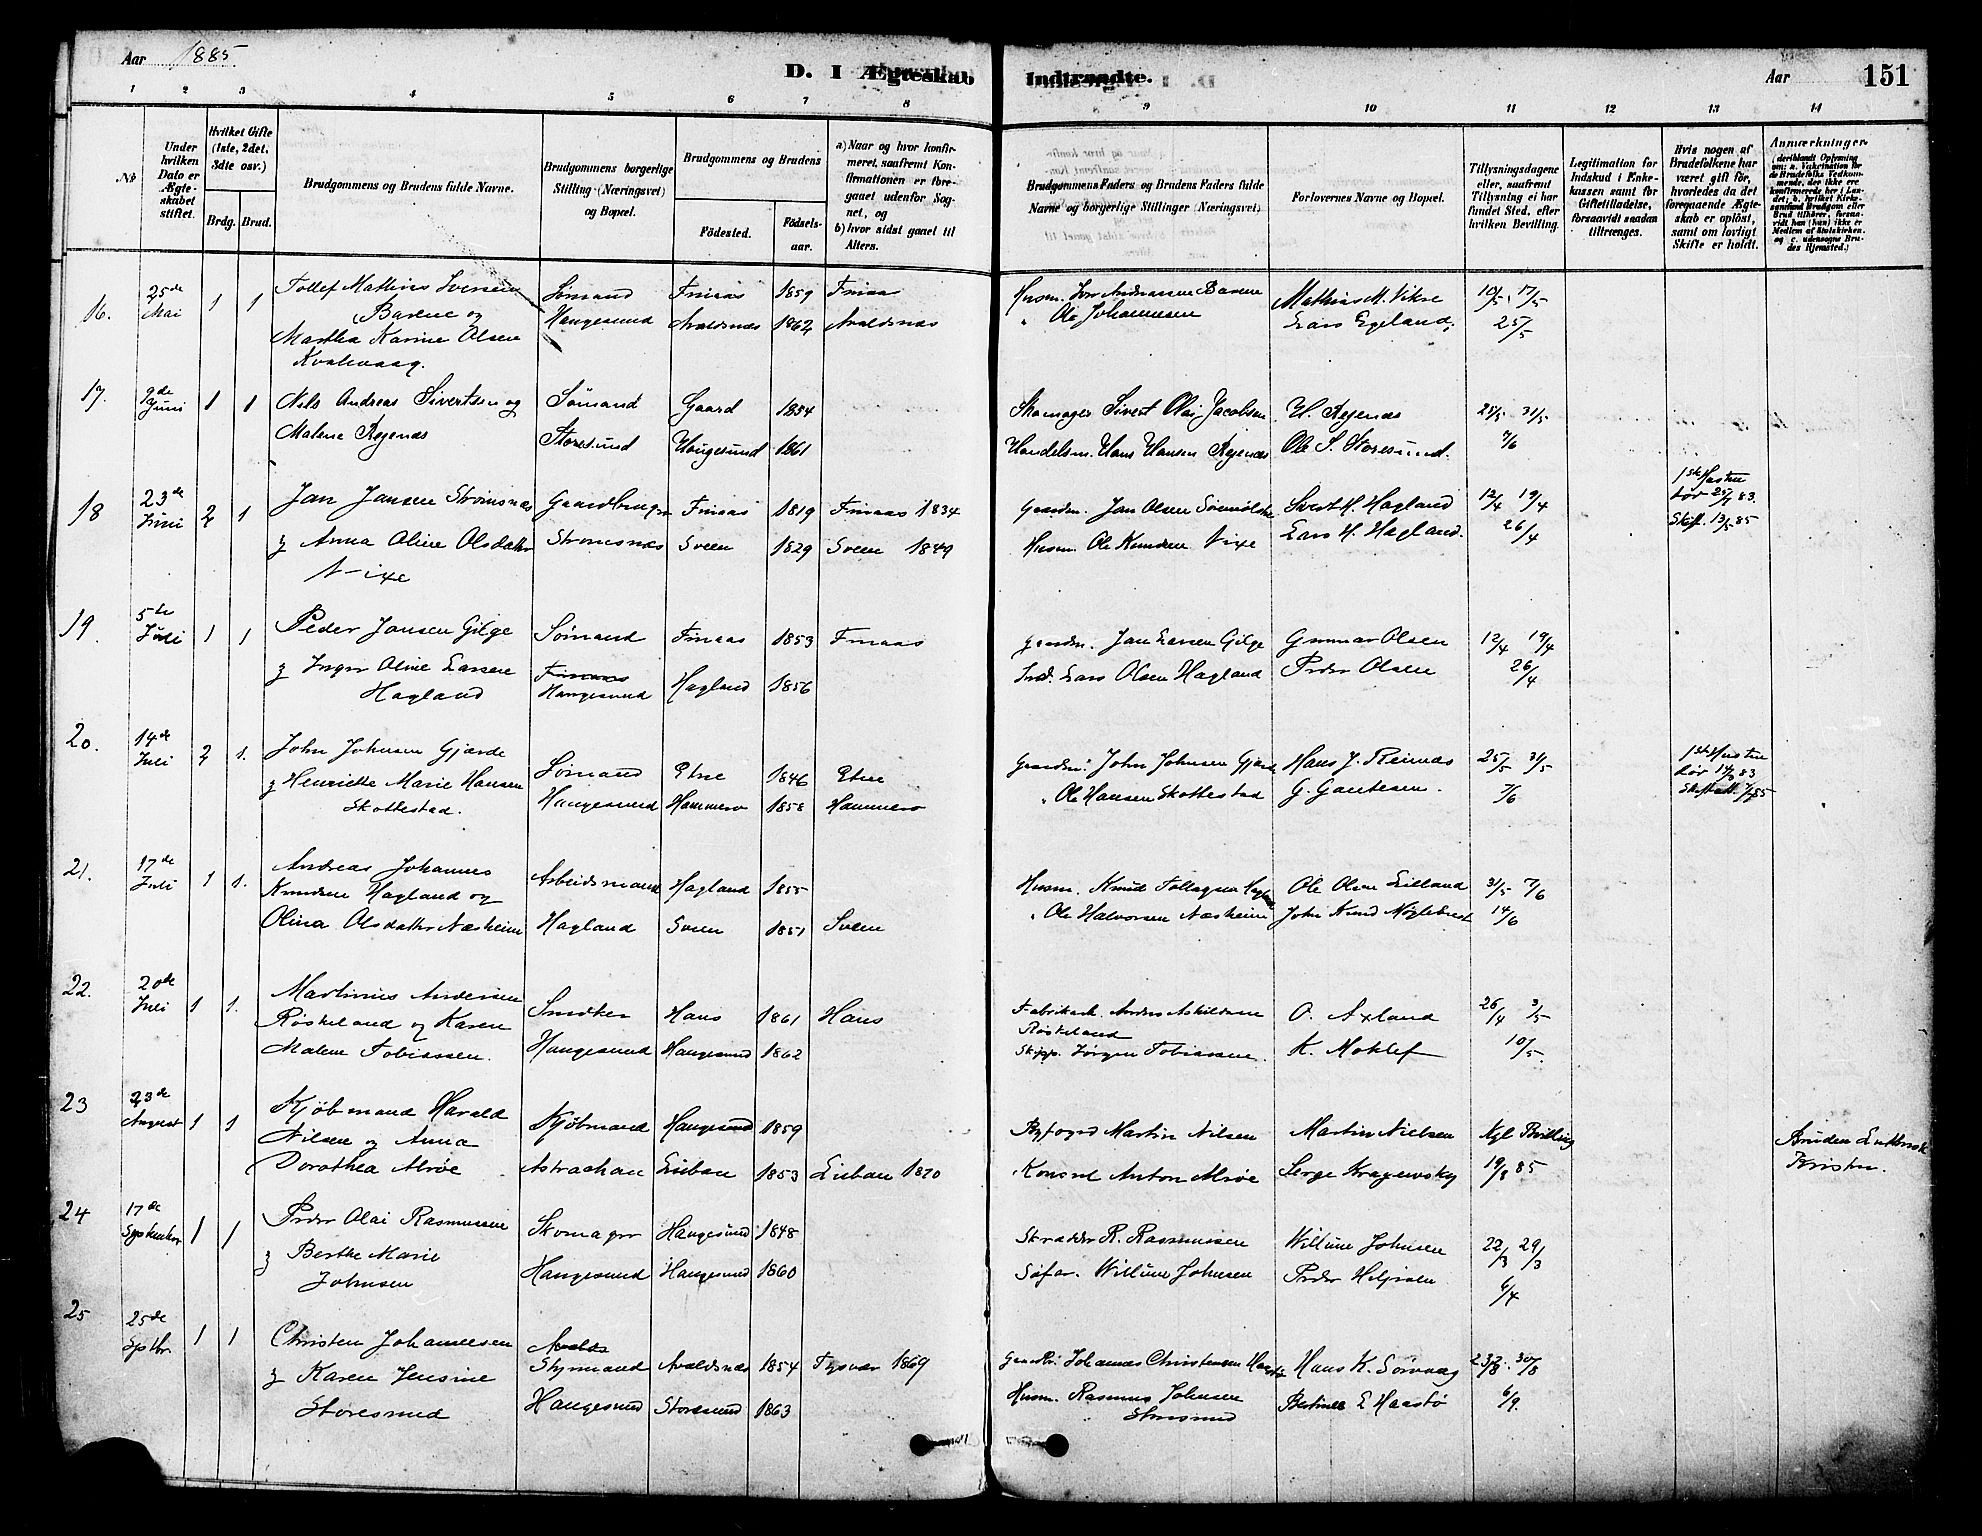 Aar 1885.
D. I Ægteskab
Indtraadte.
Aar
151
1 2 3 4 5 6 7 8
9 10 11 12 13 14
No.
Under hvilken Dato er Ægteskabet stiftet.
Hvilket Gifte (1ste, 2det, 3die osv.)
Brdg. Brud.
Brudgommens og Brudens fulde Navne.
Brudgommens borgerlige Stilling (Næringsvei) og Bopæl.
Brudgommens og Brudens
Födested.
Födselsaar.
a) Naar og hvor konfirmeret, saafremt Konfirmationen er foregaaet udenfor Sognet, og
b) hvor sidst gaaet til Alters.
Brudgommens Faders og Brudens Faders fulde Navne og borgerlige Stillinger (Næringsvei)
Forlovernes Navne og Bopæl.
Tillysningsdagene eller, saafremt Tillysning ei har fundet Sted, efter hvilken Bevilling.
Legitimation for Indskud i Enkekassen samt for Giftetilladelse, forsaavidt saadan tiltrænges.
Hvis nogen af Brudefolkene har været gift för, hvorledes da det foregaaende Ægteskab er oplöst, samt om lovligt Skifte er holdt.
Anmærkninger
16. 25de Mai 1 1 Tollef Mathias Iversen Sömand Finaas 1859 Finaas Husm. Iver Andreassen Mathias M. Vikse 10/5. 17/5
og Haugesund Avaldsnæs 1862 Avaldsnæs " Ole Johannesen Lars Egeland. 25/5
Martha Karine Olsen
Kvalevaag.
17. 9de Juni 1 1 Nils Andreas Sivertsen og Sömand Gaard 1854 Skomager Sivert Olai Jacobsen H. Røjenæs 31/5
Malene Røjenæs Storesund Haugesund 1861 Handelsm. Hans Hansen Røjenæs Ole S. Storesund. 7/6
18 23de Juni 2 1 Jan Jansen Strömsnæs Gaardbruger Finaas 1819 Finaas 1834 Gaardm. Jan Olsen Sivert H. Hagland 12/4 19/4 1ste Hustru
død 83.
og Anna Oline Olsdatter Strömsnæs Sveen 1829 Sveen 1849 Husm. Ole Knudsen Vixe Lars H. Hagland. 26/4 Skift. 13/5 85
Vixe
19. 5te Juli 1 1 Peder Jansen Gilje Sömand Finaas 1853 Finaas Gaardm. Jan Larsen Gilje Gunnar Olsen 12/4 19/4
og Inger Oline Larsen Finaas Haugesund Hagland 1856 Lars Olsen Hagland Peder Olsen 26/4
Hagland
20. 14de Juli 2 1. John Johnsen Gjærde Sömand Etne 1846 Etne Gaardm: John Johnsen Gjærde Hans J. Reinæs 25/5 31/5 1ste Hustru
død 83
og Henriette Marie Hansen Haugesund Hammerø 1858 Hammerø " Ole Hansen Skottestad G. Gautesen. 7/6
Skottestad.
21. 17de Juli 1 1. Andreas Johannes
Knudsen Hagland og Arbeidsmand Hagland 1855 Husm. Knud Ole Olsen Lilland 31/5 7/6
Olina Olsdatter Næsheim Hagland Sveen 1851 Sveen " Ole Halvorsen Næsheim 14/6
22. 20de Juli 1 1. Martinius Andersen Snedker Haus 1861 Haus Fabrikarb. Anders Askildsen O. Axland 26/4 3/5
Røskeland og Karen Røskeland
Malene Tobiassen. Haugesund Haugesund 1862 Skipp. Jörgen Tobiassen. K. Moklef 10/5.
23 23de August 1 1 Kjöbmand Harald
Nilsen og Anna Kjöbmand Haugesund 1859 Byfoged Martin Nilsen Martin Nielsen Kgl Bevilling Bruden Luthersk
Dorothea Mröe Astrachan Liban 1853 Liban 1870 Konsul Anton Mröe Serge Kragewsky 19/8 85
24 17de September 1 1 Peder Olai Rasmussen Skomager Haugesund 1848 Skræder R. Rasmussen Willum Johnsen 22/3 29/3
og Berthe Marie Haugesund Haugesund 1860 Søfar. Willum Johnsen Peder Heljesen 6/4
Johnsen
25 25de Septbr. 1 1 Christen Johannesen Styrmand Avaldsnæs 1854 Tysvær 1869 Johannes Christensen Hans K. Sörvaag 23/8. 30/8
og Karen Jensine Haugesund Storesund 1863 Husm. Rasmus Johnsen E Haastö 6/9.
Storesund Storesund